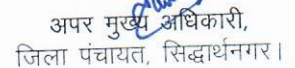 अपर मुख्य अधिकारी,
जिला पंचायत, सिद्धार्थनगर।